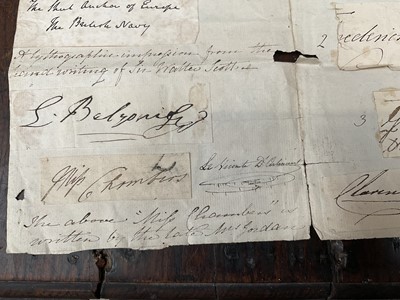 The Sheet Anchor of Europe
The British Navy
A lythographic impression from the
hand writing of Sir Walter Scott
G. Belzoni
Miss Chambers
Le Vicomte D'
The above "Miss Chambers" is
written by the late Mrs Jordan
2
rederic
3
Claren